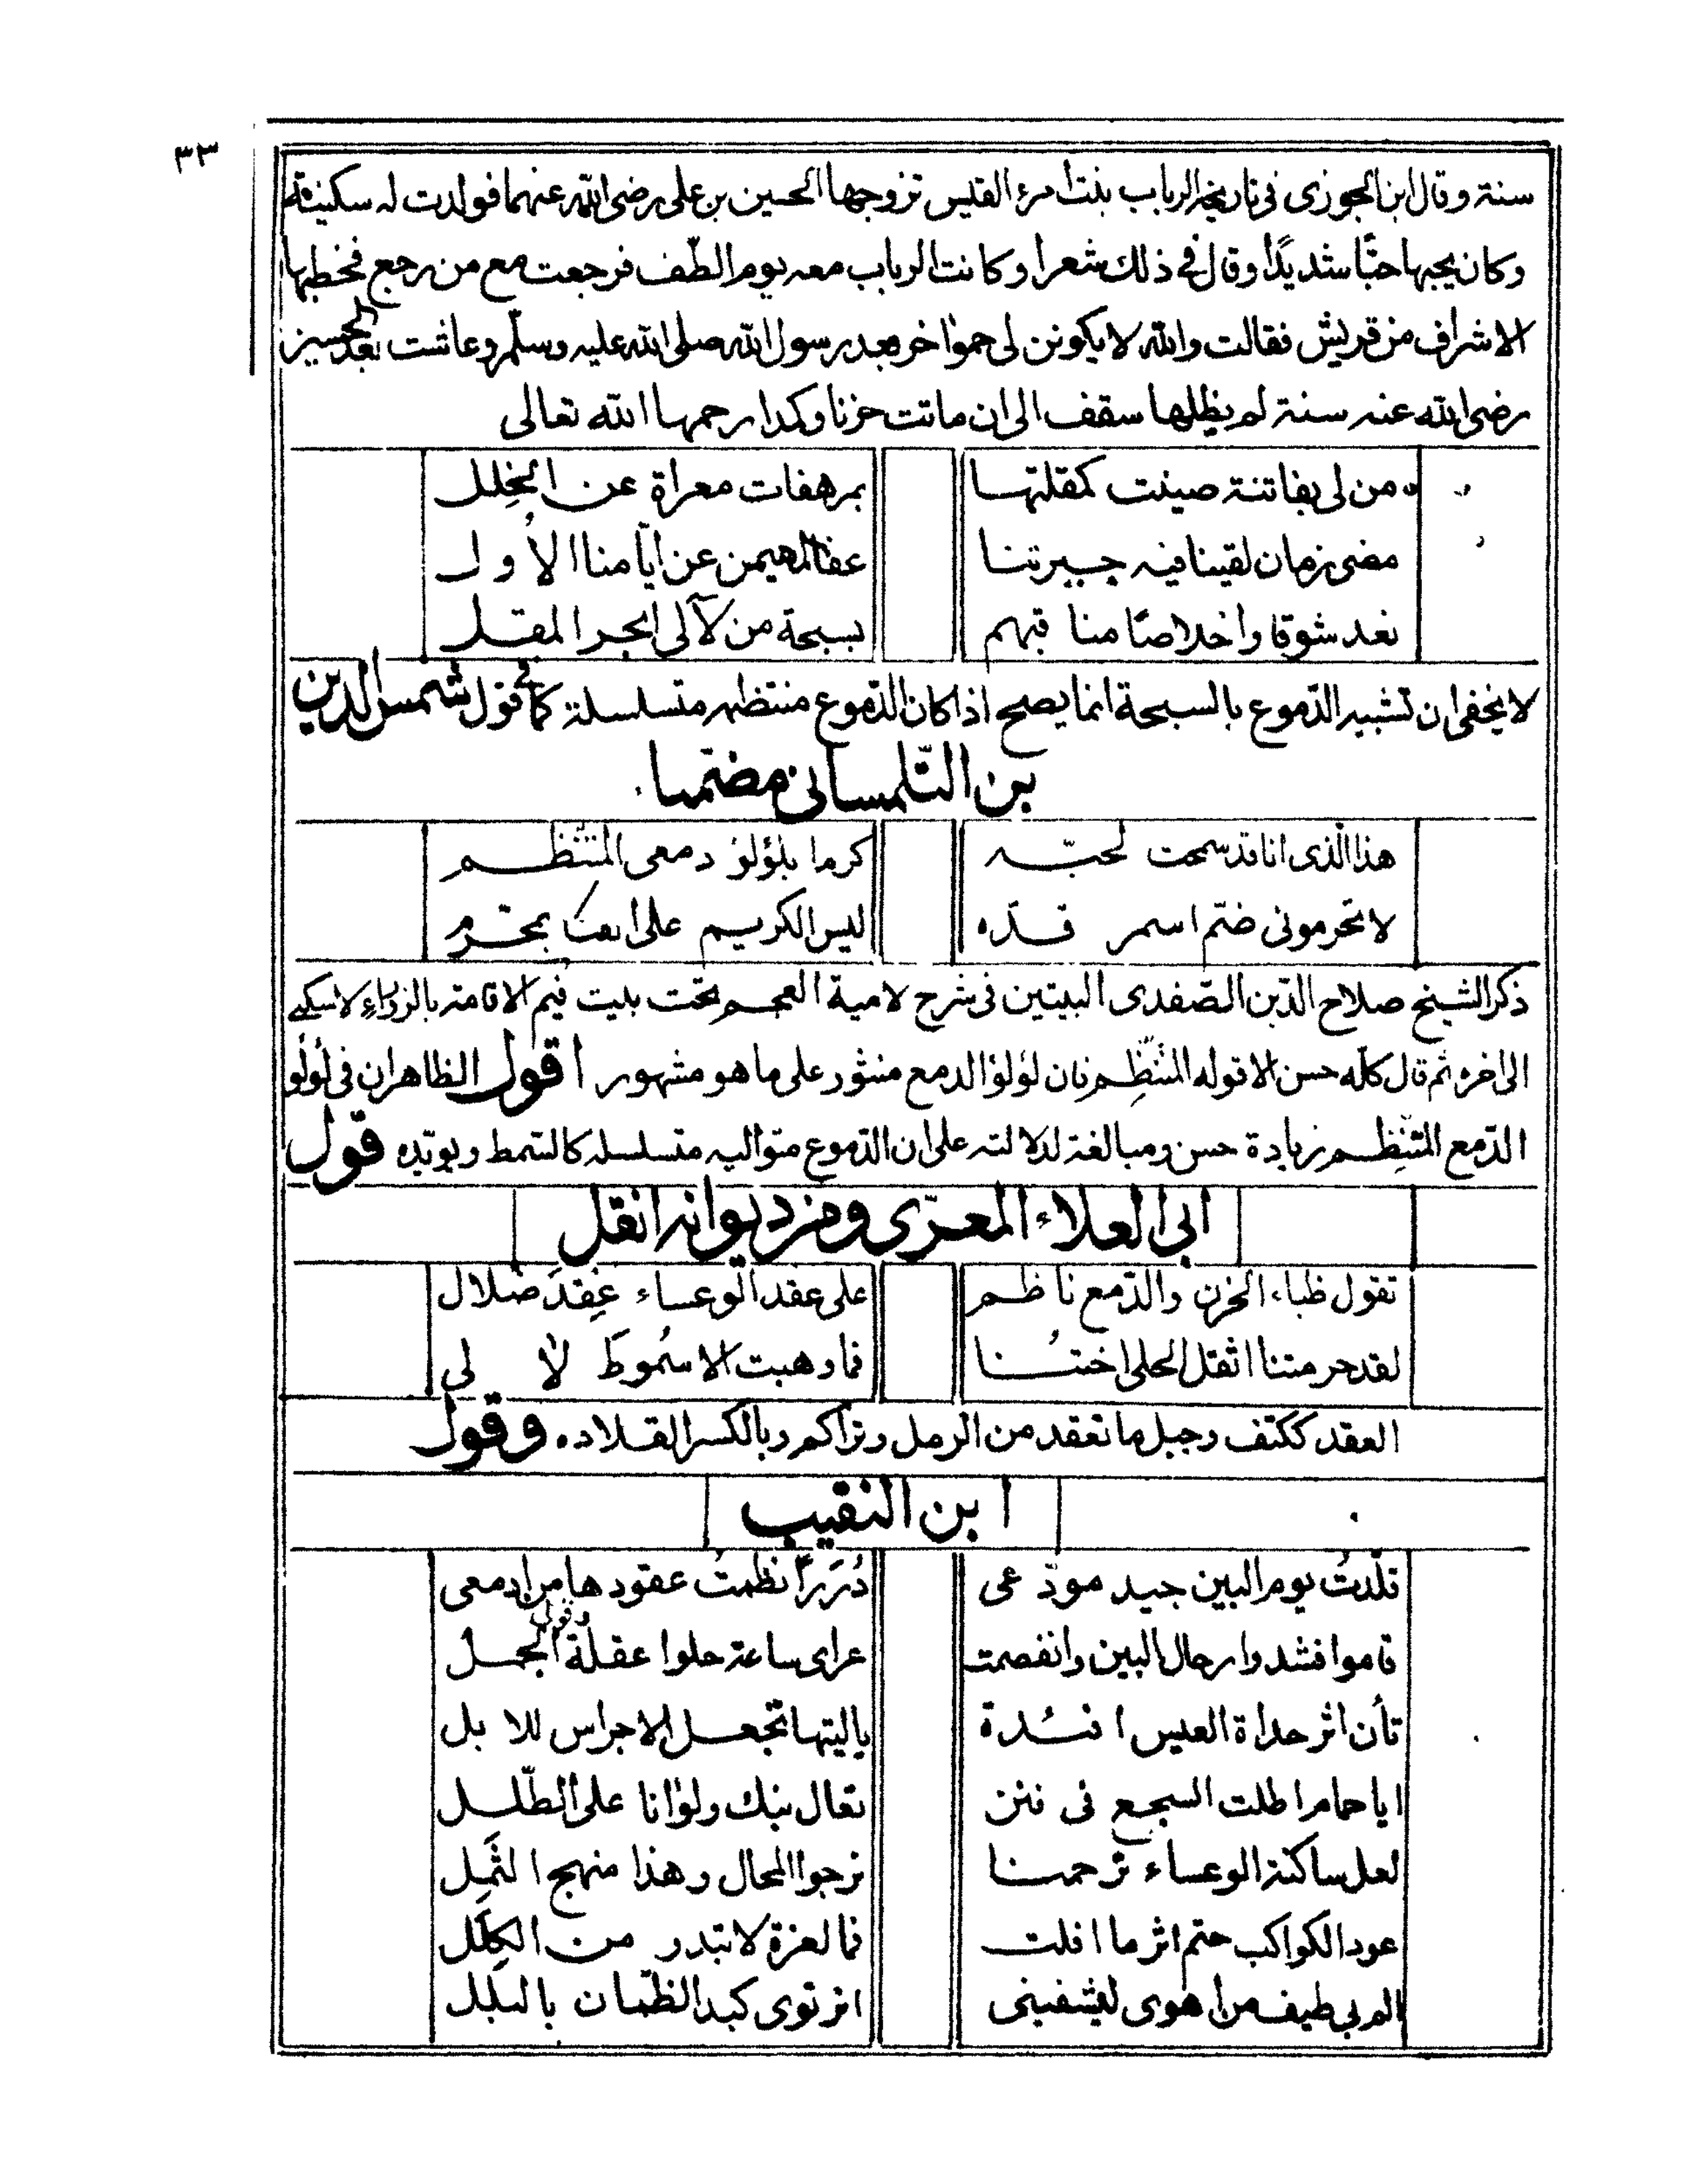 ٣٣
سنة وقال ابن الجوزى فى تاريخه الرباب بنت أمرء القيس تزوجها الحسين بن على رضى الله عنهما فولدت له سكينة
وكان يحبها حبّا شديدًا وقال فى ذلك شعرا وكانت الرباب معه يوم الطّف فرجعت مع من رجع فخطبها
الاشراف من قريش فقالت والله لا يكونن لى حموا خر بعد رسول الله صلى الله عليه وسلّم وعاشت بعد الحسين
رضى الله عنه سنة لم يظلها سقف الى ان ماتت حزنا وكمدا رحمها الله تعالى
من لى بفاتنة صينت كمقلتها بمرهفات معراة عن الخِلل
مضى زمان لقينا فيه جيرتنا عفا المهيمن عن ايّامنا الاُول
نعد شوقا واخلاصًا مناقبهم بسبحة من لآلى ابحر المقل
لا يخفى ان تشبيه الدّموع بالسبحة انما يصح اذا كان الدّموع منتظمه متسلسلة كما فى قول شمس الدين
بن التّلمسانى مضمّنا
هذا الّذى انا قد سمحت لحبّه كرما بلؤلؤ دمعى المتنظّم
لا تحرمونى ضمّ اسمر قدّه ليس الكريم على القنا بمحرّم
ذكر الشيخ صلاح الدّين الصّفدى البيتين فى شرح لامية العجم تحت بيت فيم الاقامة بالزوراء لا سكنى
الى اخره ثم قال كلّه حسن الا قوله المتنظّم فان لؤلؤ الدمع منثور على ما هو مشهور اقول الظاهر ان فى لؤلؤ
الدّمع المتنظّم زيادة حسن ومبالغة لدلالته على ان الدّموع متواليه متسلسله كالسّمط ويؤيّده قول
ابى العلاء المعرّى ومن ديوانه انقل
تقول ظباء الحزن والدّمع ناظم على عقد الوعساء عِقدَ ضلال
لقد حرمتنا اثقل الحلى اختُنا فما وهبت الا سُموطَ لاٰلى
العقد ككتف وجبل ما تعقد من الرمل وتراكم وبالكسر القلاده وقول
ابن النقيب
قلّدتُ يوم البين جيد مودّعى دُرَرًا نظمتُ عقودها من ادمعى
وقولى
قاموا فشدوا رحال البين وانفصمت عراى ساعة حلوا عقلةُ الجمل
تأن اثر حداة العيس افئدة ياليتها تجعل الاجراس للابل
ايا حماما طلت السجع فى فنن تعال نبك ولوانا على الطّلل
لعل ساكنة الوعساء ترحمنا نرجوا المحال وهذا منهج الثَّمِل
عود الكواكب حتم اثر ما افلت فما لعزة لا تبدر من الكِلَل
الم بى طيف من اهوى ليشفينى انرتوى كبد الظمان بالبلل